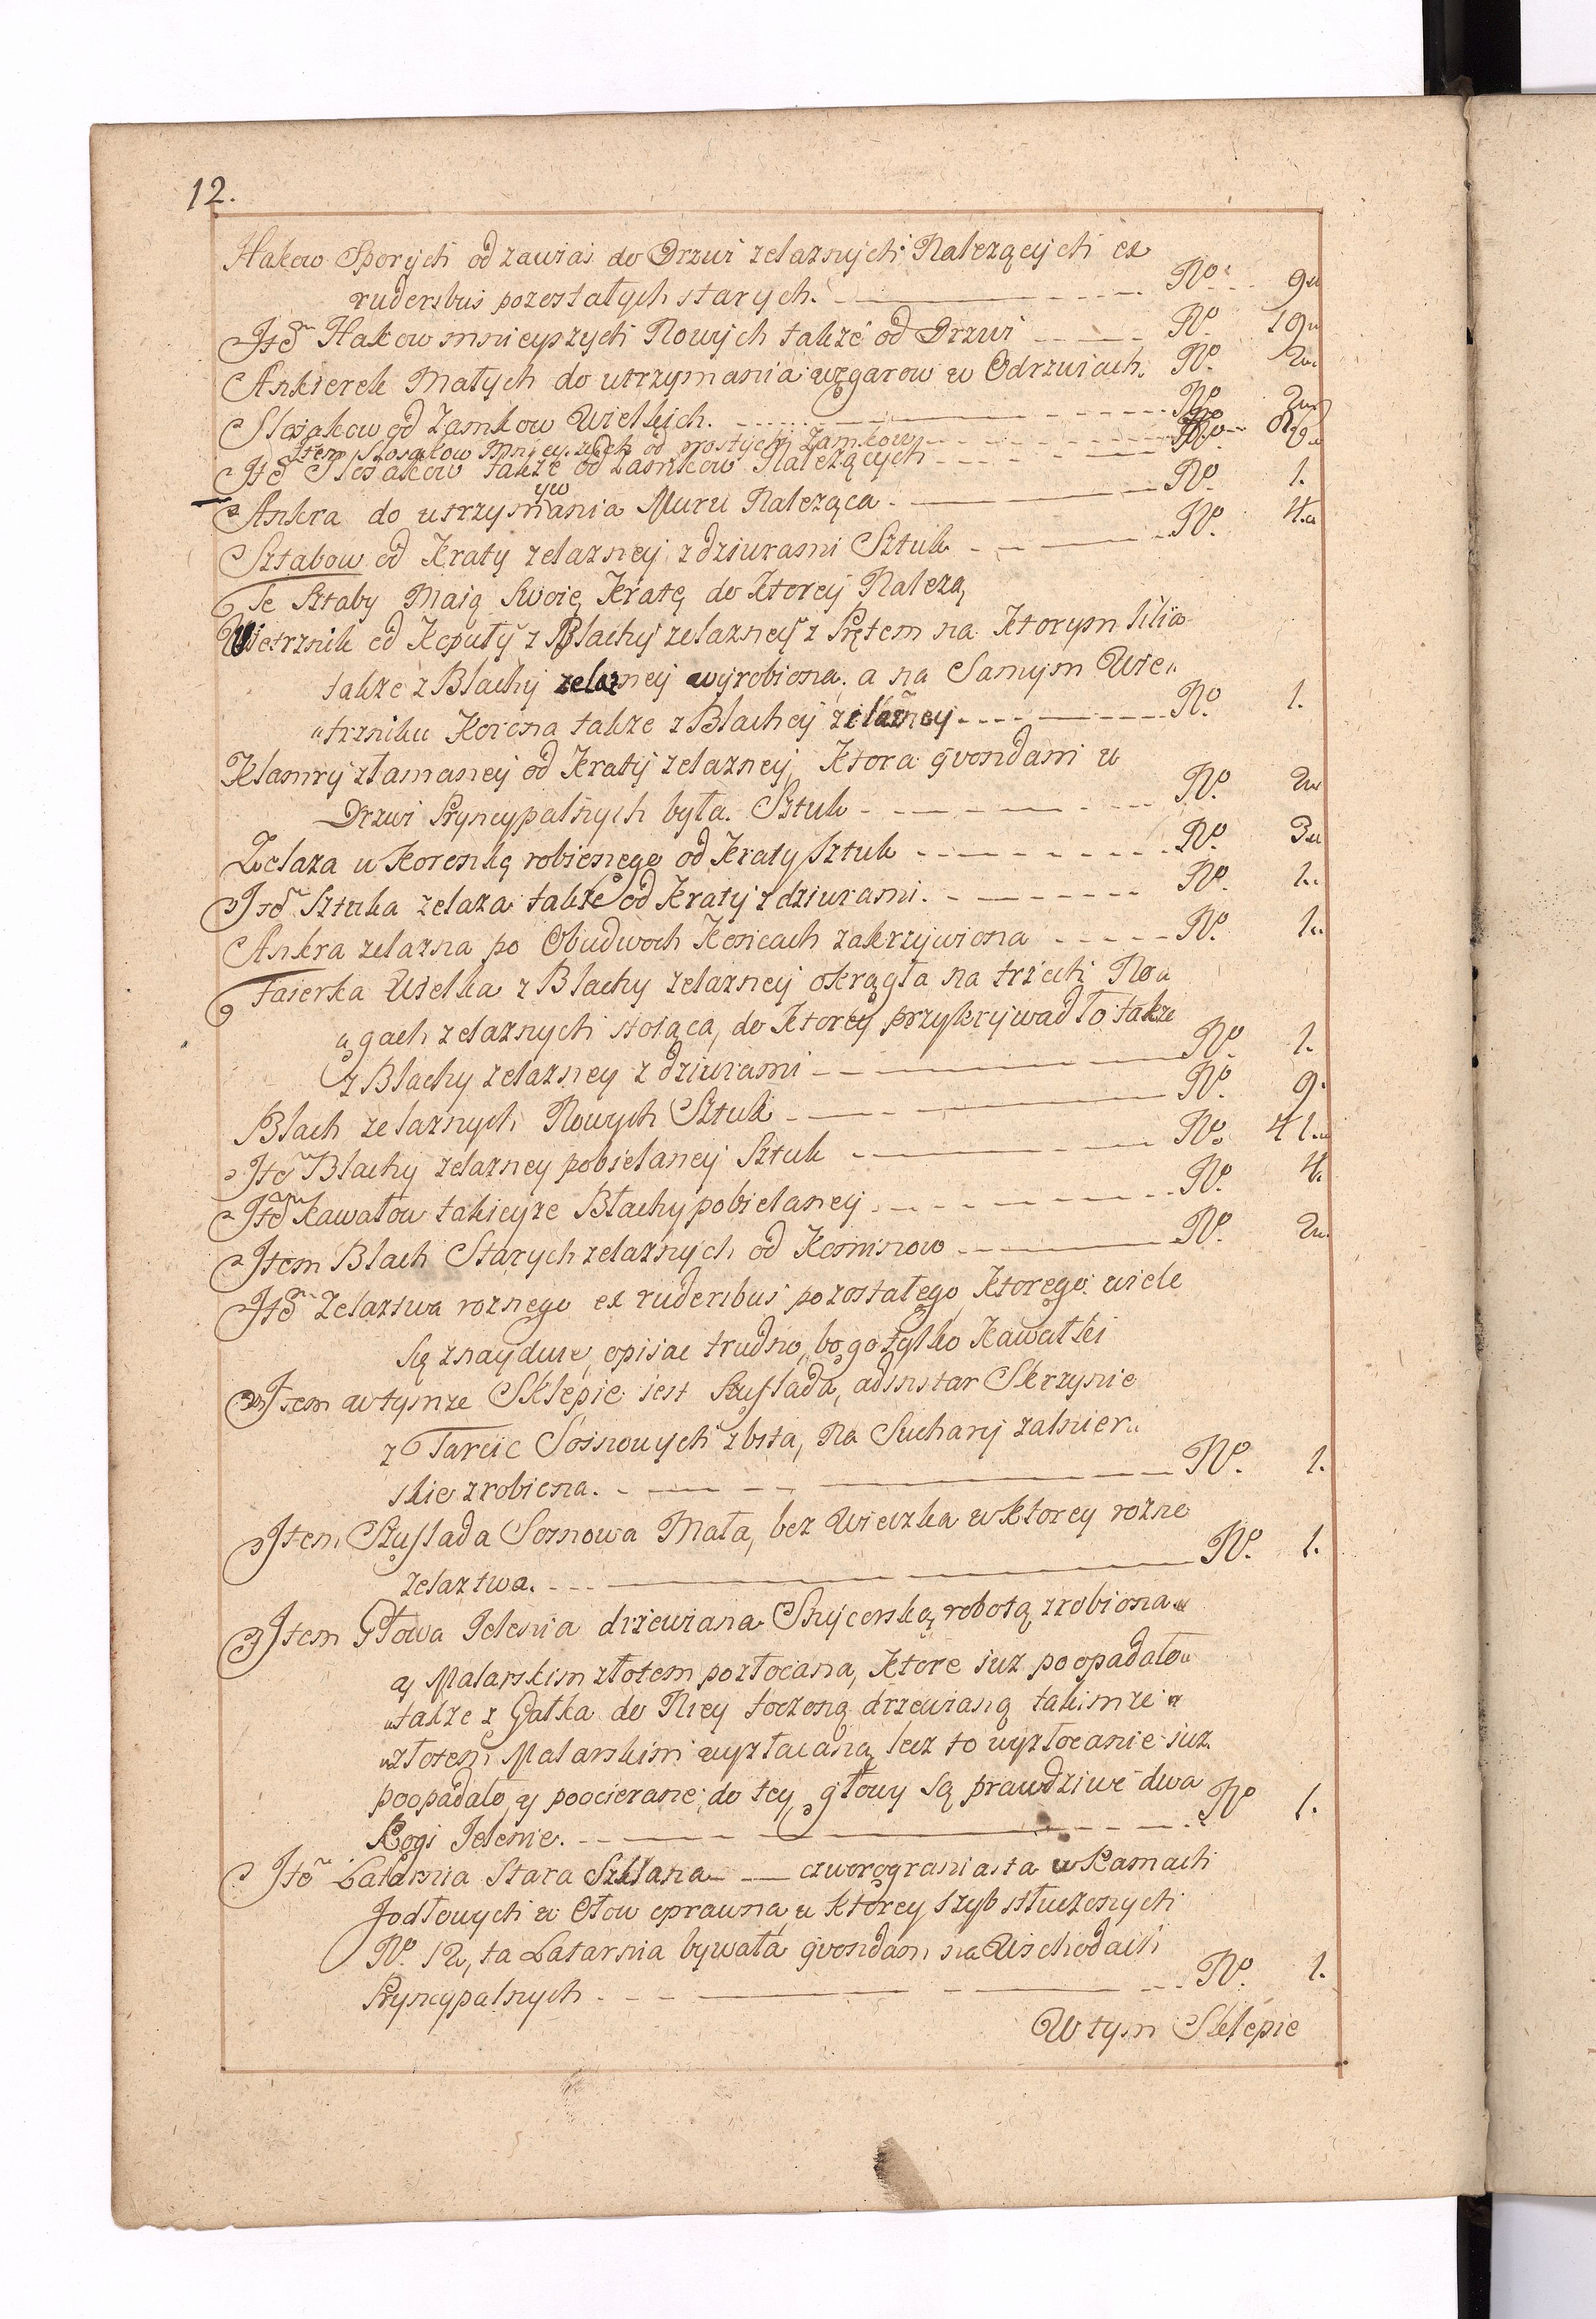 12.
Hakow Sporych od zawias do Drzwi zelaznych Nalezących ex
ruderibus pozostałych starych. No. 9
Itm Hakow mnieyszych Nowych takze od Drzwi No. 19
Ankierek Małych do utrzymania węgarow w Odrzwiach. No. 2
Slosakow od Zamkow Wielkich. No. 2
Item Slosakow Mnieyszych od prostych Zamkow No. 8
Itm Slosakow takze od Zamkow Nalezących No.
Ankra do utrzymania Muru Naleząca No. 1.
yw
Sztabow od Kraty zelazney z dziurami Sztuk No. 4.
Te Sztaby Maią Swoię Kratę do Ktorey Nalezą
Wietrznik od Kopuły z Blachy zelazney z Prętem na Ktorym lilia
takze z Blachy zelazney wyrobiona, a na Samym Wie
trzniku Korona takze z Blachy zelazney No. 1.
Klamry złamaney od Kraty zelazney, Ktora quondam u
Drzwi Pryncypalnych była. Sztuk No. 2
Zelaza w Koronkę robionego od Kraty Sztuk No. 3
Itm Sztuka zelaza takze od Kraty z dziurami. No. 1.
Ankra zelazna po Obudwoch Koncach zakrzywiona No. 1.
Faierka Wielka z Blachy zelazney okrągła na trzech No
gach zelaznych stoiąca, do Ktorey przykrywadło takze
z Blachy zelazney z dziurami No. 1.
Blach zelaznych Nowych Sztuk No. 9.
Itm Blachy zelazney pobielaney Sztuk No. 41.
Itm Kawałow takieyze Blachy pobielaney No. 4.
Item Blach Starych zelaznych od Kominow No. 2
Itm Zelaztwa roznego ex ruderibus pozostałego, Ktorego wiele
Się znayduie, opisac trudno, bo go tylko Kawałki
Item w tymze Sklepie iest Szuflada, adinstar Skrzynie
z Tarcic Sosnowych zbita, na Suchary zołnier
skie zrobiona. No. 1.
Item Szuflada Sosnowa Mała, bez Wieczka w Ktorey rozne
zelaztwa. No. 1.
Item Głowa Ielenia drzewiana Snycerską robotą zrobiona
ay Malarskim złotem pozłocana, Ktore iuz poopadało
takze z Gałka do Niey toczoną drzewianą takimze
złotem Malarskim wyzłacaną, lecz to wyzłocanie iuz
poopadało, ay poocierane; do tey głowy są prawdziwe dwa
Rogi Ielenie. No 1.
Itm Latarnia Stara Szklana czworograniasta w Ramach
Jodłowych w Ołow oprawna, w ktorey szyb stłuczonych
No. 12, ta Latarnia bywała quondam na Wschodach
Pryncypalnych No. 1.
W tym Sklepie